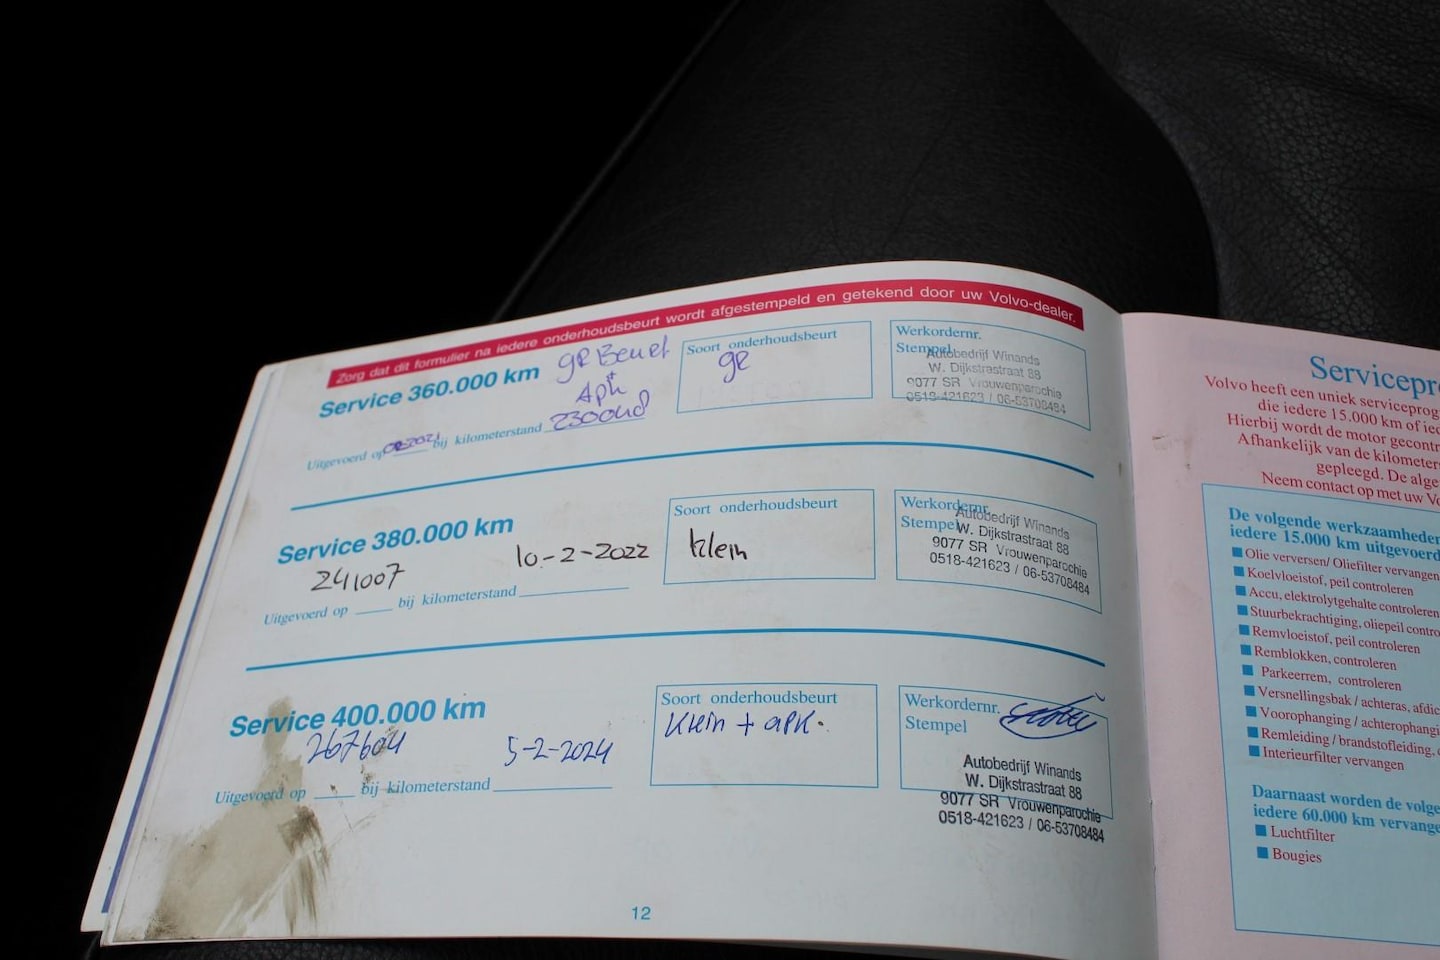 Zorg dat dit formulier na iedere onderhoudsbeurt wordt afgestempeld en getekend door uw Volvo-dealer.
Service 360.000 km
gR Beurt
+
Apk
Uitgevoerd op 02-2021 bij kilometerstand
Soort onderhoudsbeurt
gR
Werkordernr.
Stempel
Autobedrijf Winands
W. Dijkstrastraat 88
9077 SR Vrouwenparochie
0518-421623 / 06-53708484
Service 380.000 km
241007 10-2-2022
Uitgevoerd op bij kilometerstand
Soort onderhoudsbeurt
klein
Werkordernr.
Stempel
Autobedrijf Winands
W. Dijkstrastraat 88
9077 SR Vrouwenparochie
0518-421623 / 06-53708484
Service 400.000 km
267604 5-2-2024
Uitgevoerd op bij kilometerstand
Soort onderhoudsbeurt
Klein + apk.
Werkordernr.
Stempel
Autobedrijf Winands
W. Dijkstrastraat 88
9077 SR Vrouwenparochie
0518-421623 / 06-53708484
12
Servicepr
Volvo heeft een uniek serviceprog
die iedere 15.000 km of ied
Hierbij wordt de motor gecontr
Afhankelijk van de kilometers
gepleegd. De alge
Neem contact op met uw Vo
De volgende werkzaamheden
iedere 15.000 km uitgevoerd
Olie verversen/ Oliefilter vervangen
Koelvloeistof, peil controleren
Accu, elektrolytgehalte controleren
Stuurbekrachtiging, oliepeil contro
Remvloeistof, peil controleren
Remblokken, controleren
Parkeerrem, controleren
Versnellingsbak / achteras, afdic
Voorophanging / achterophangi
Remleiding / brandstofleiding,
Interieurfilter vervangen
Daarnaast worden de volge
iedere 60.000 km vervange
Luchtfilter
Bougies